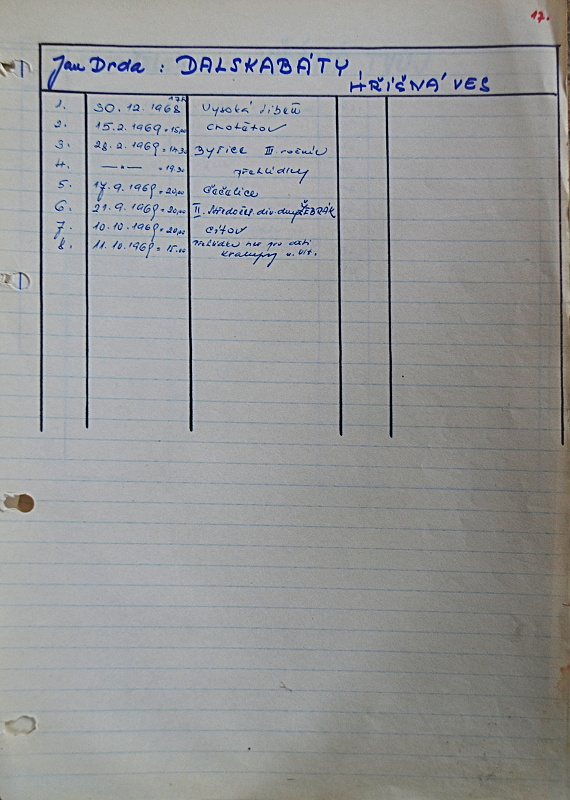 17.
Jan Drda : DALSKABÁTY
HŘÍŠNÁ VES
1. 30.12.1968 17h Vysoká Libeň
2. 15.2.1969 - 15,00 Chotětov
3. 28.2.1969 - 14.30 Byšice III. ročník
4. —"— - 19.30 přehlídky
5. 17.9.1969 - 20,00 Čečelice
6. 21.9.1969 - 20,00 II. Středočes. div. dny ŽEBRÁK
7. 10.10.1969 - 20,00 Cítov
8. 11.10.1969 - 15.00 Přehlídka her pro děti
Kralupy n. Vlt.